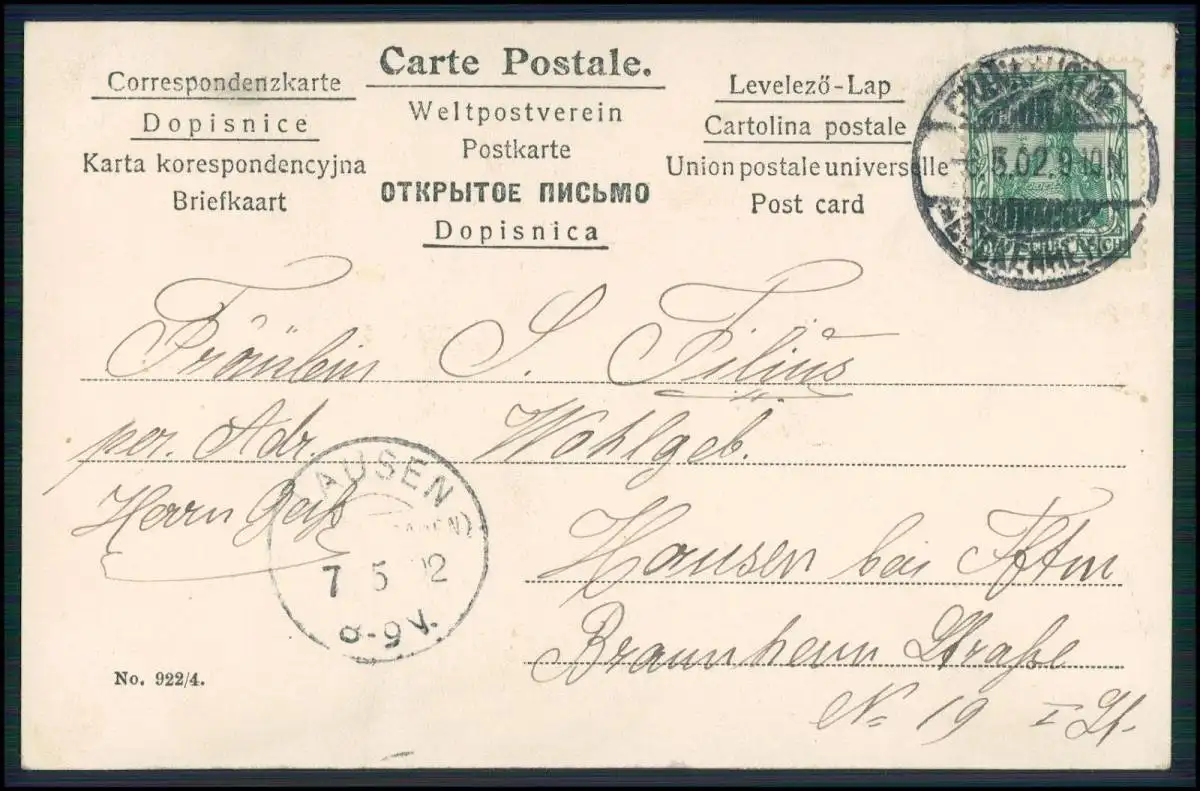 Carte Postale.
Correspondenzkarte
Dopisnice
Karta korespondencyjna
Briefkaart
Weltpostverein
Postkarte
ОТКРЫТОЕ ПИСЬМО
Dopisnica
Levelező-Lap
Cartolina postale
Union postale universelle
Post card
5.02.9-10N.
DEUTSCHES REICH
Fräulein S. Filius
per. Adr. Wohlgeb.
Herrn
Hausen bei Fftm
Straße
No 19 I
HAUSEN
7 5 02
8-9 V.
No. 922/4.